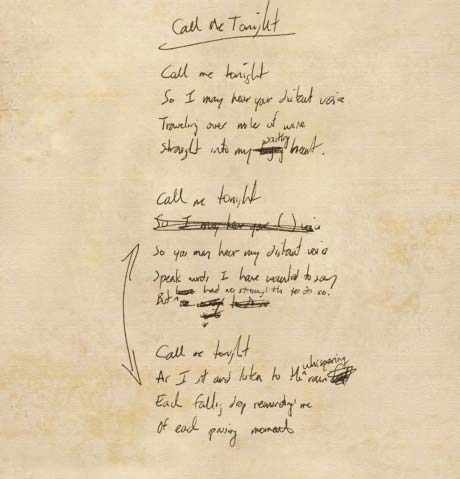 Call Me Tonight
Call me tonight
So I may hear your distant voice
Traveling over miles of wire
Straight into my heart.
Call me tonight
So I may hear your ( ) voice
So you may hear my distant voice
Speak words I have wanted to say
But had no strength to do so.
Call me tonight
As I sit and listen to the whispering rain
Each falling drop reminding me
Of each passing moment